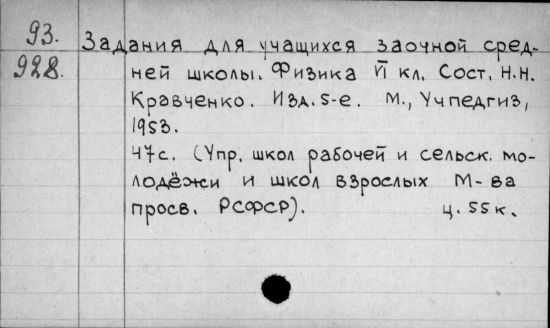 93.
928.
Задания для учащихся заочной сред-
ней школы. Физика II кл. Сост. Н.Н.
Кравченко. Изд. 5-е. М., Учпедгиз,
1953.
47с. (Упр. школ рабочей и сельск. мо-
лодёжи и школ взрослых М-ва
просв. РСФСР). ц. 55к.